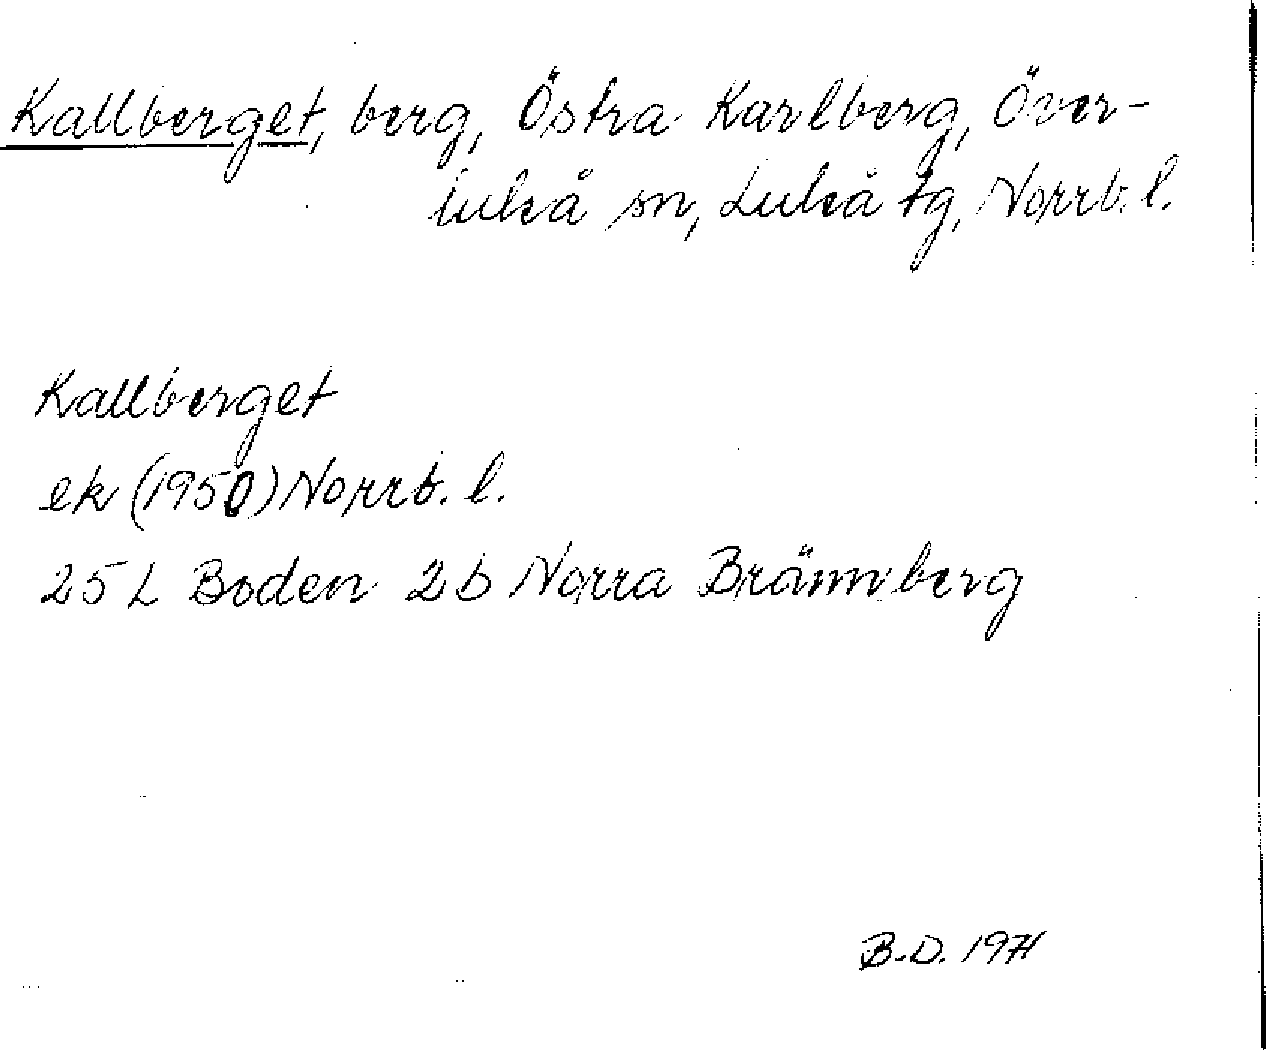 Kallberget, berg, Östra Karlberg, Över-
luleå sn, Luleå tg, Norrb. l.
Kallberget
ek (1950) Norrb. l.
25 L Boden 2b Norra Brännberg
B.D. 1971